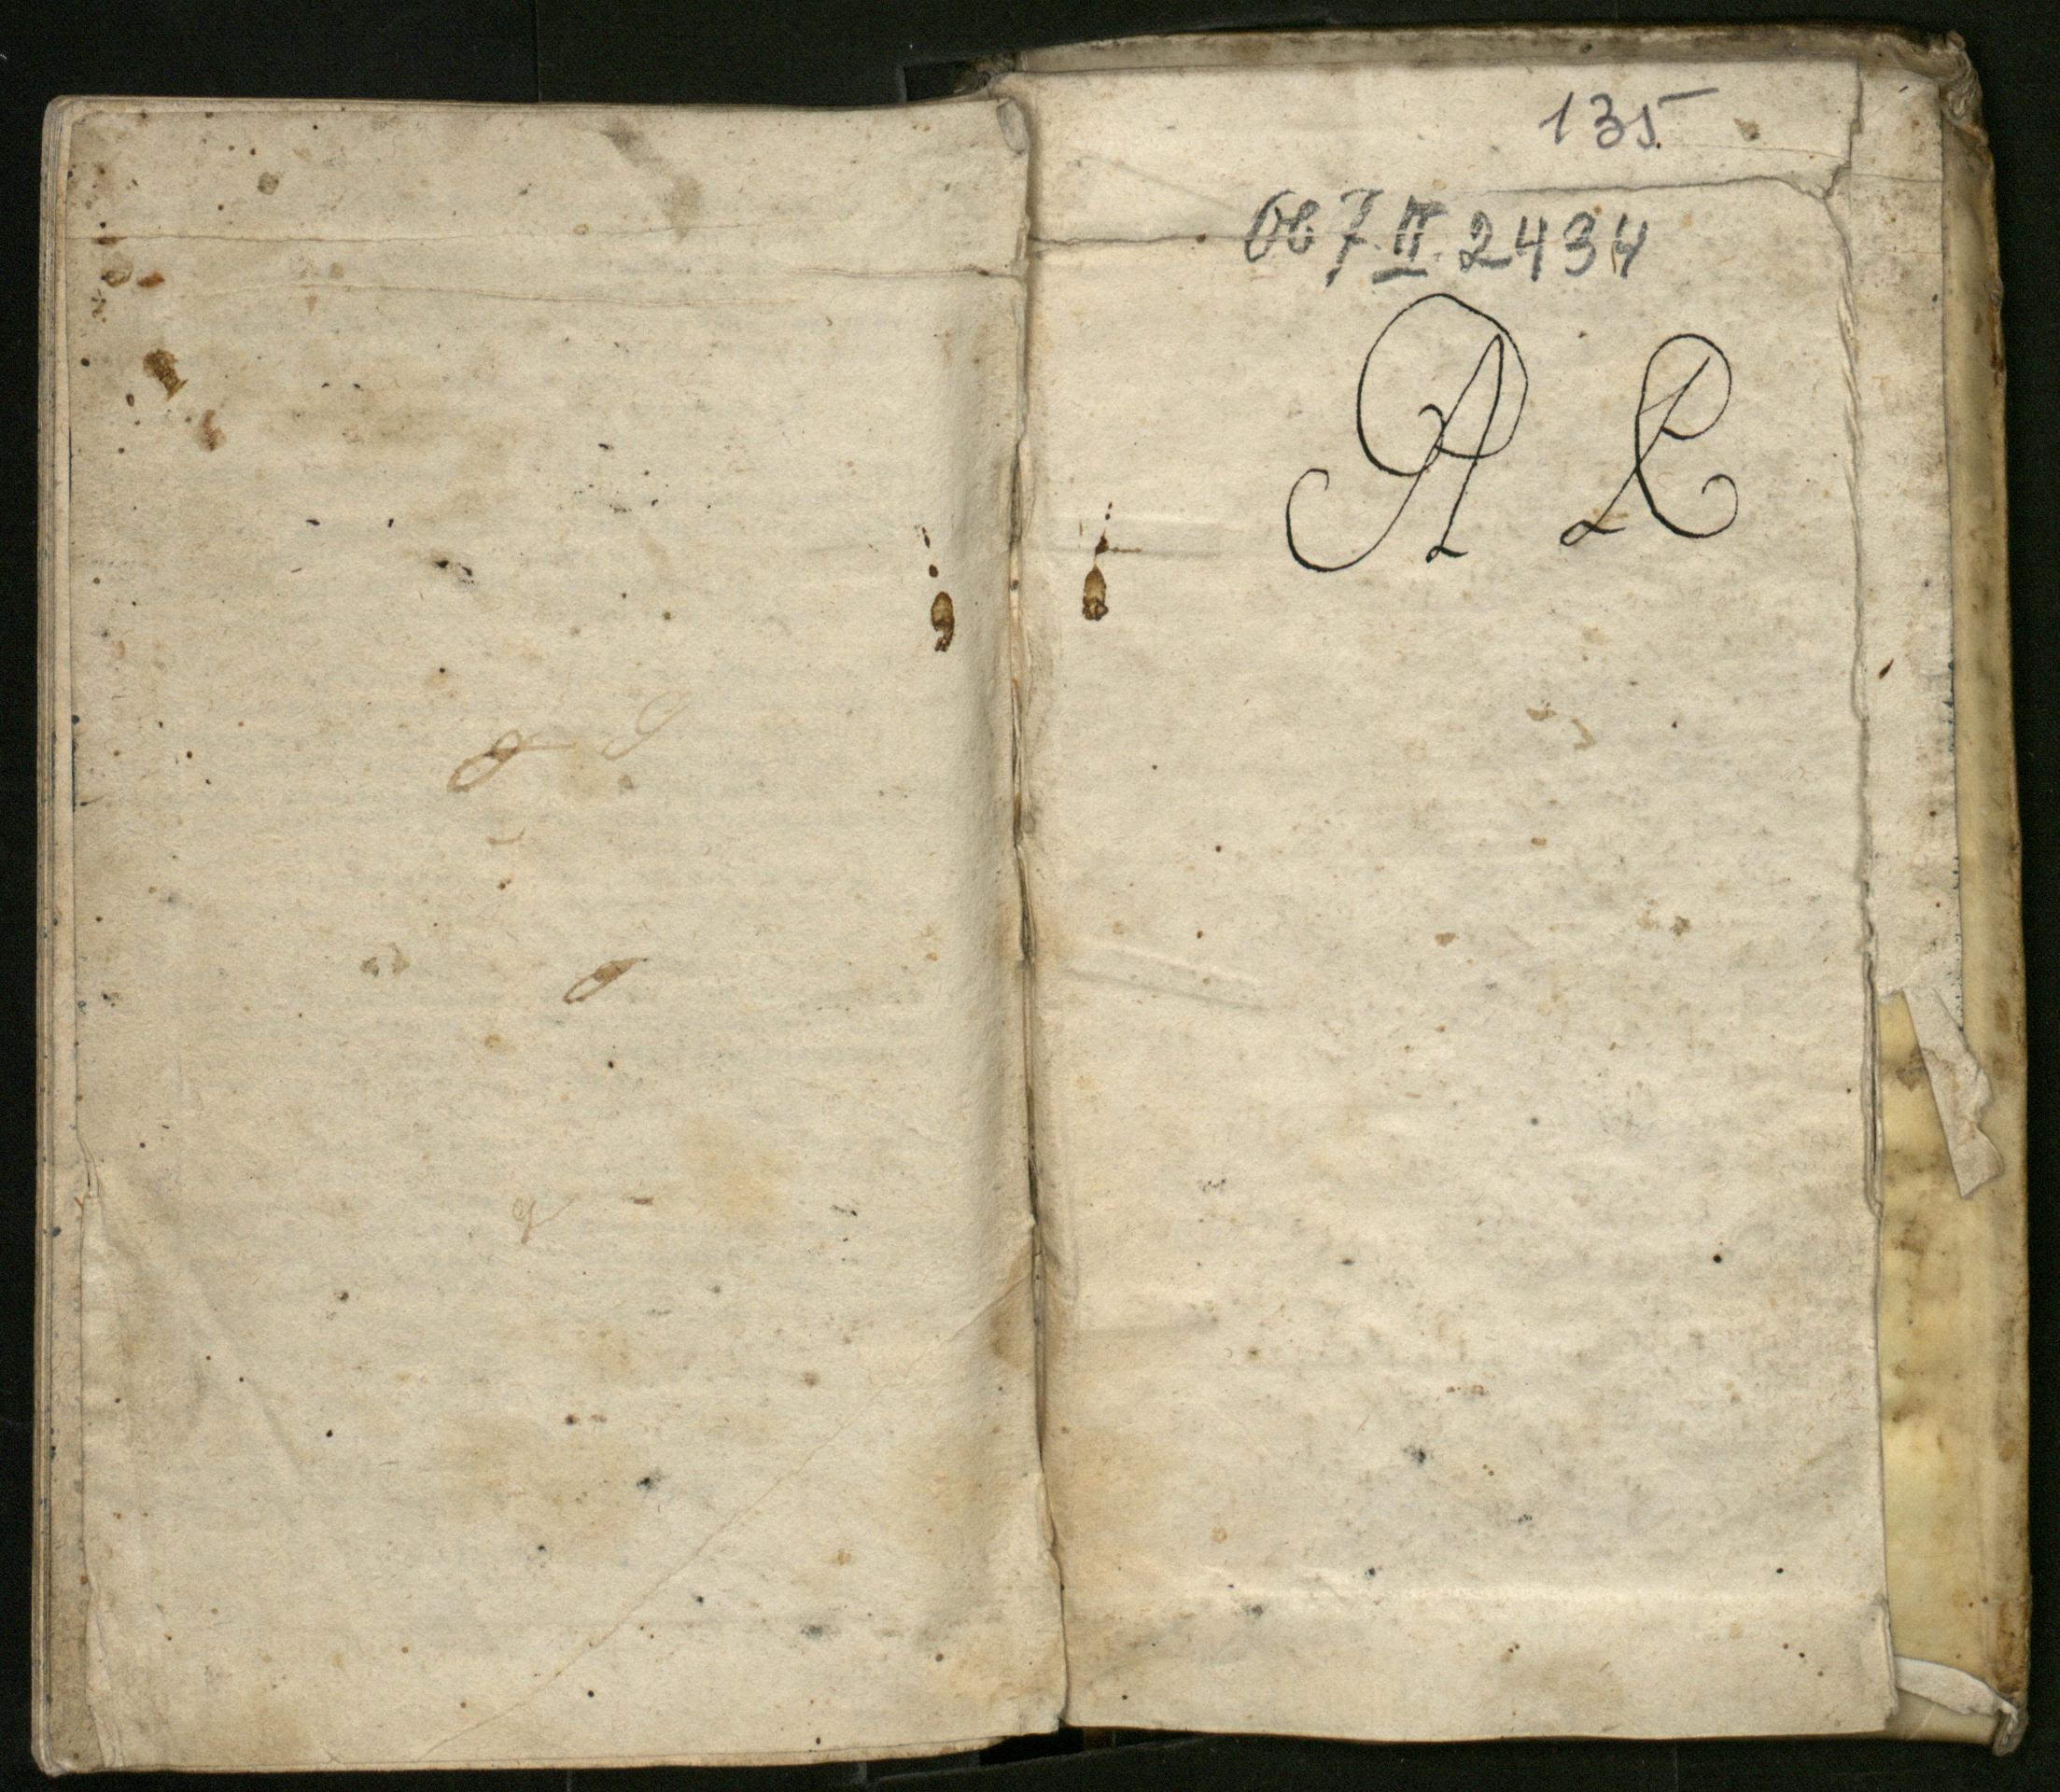 135
067.II.2434
A L